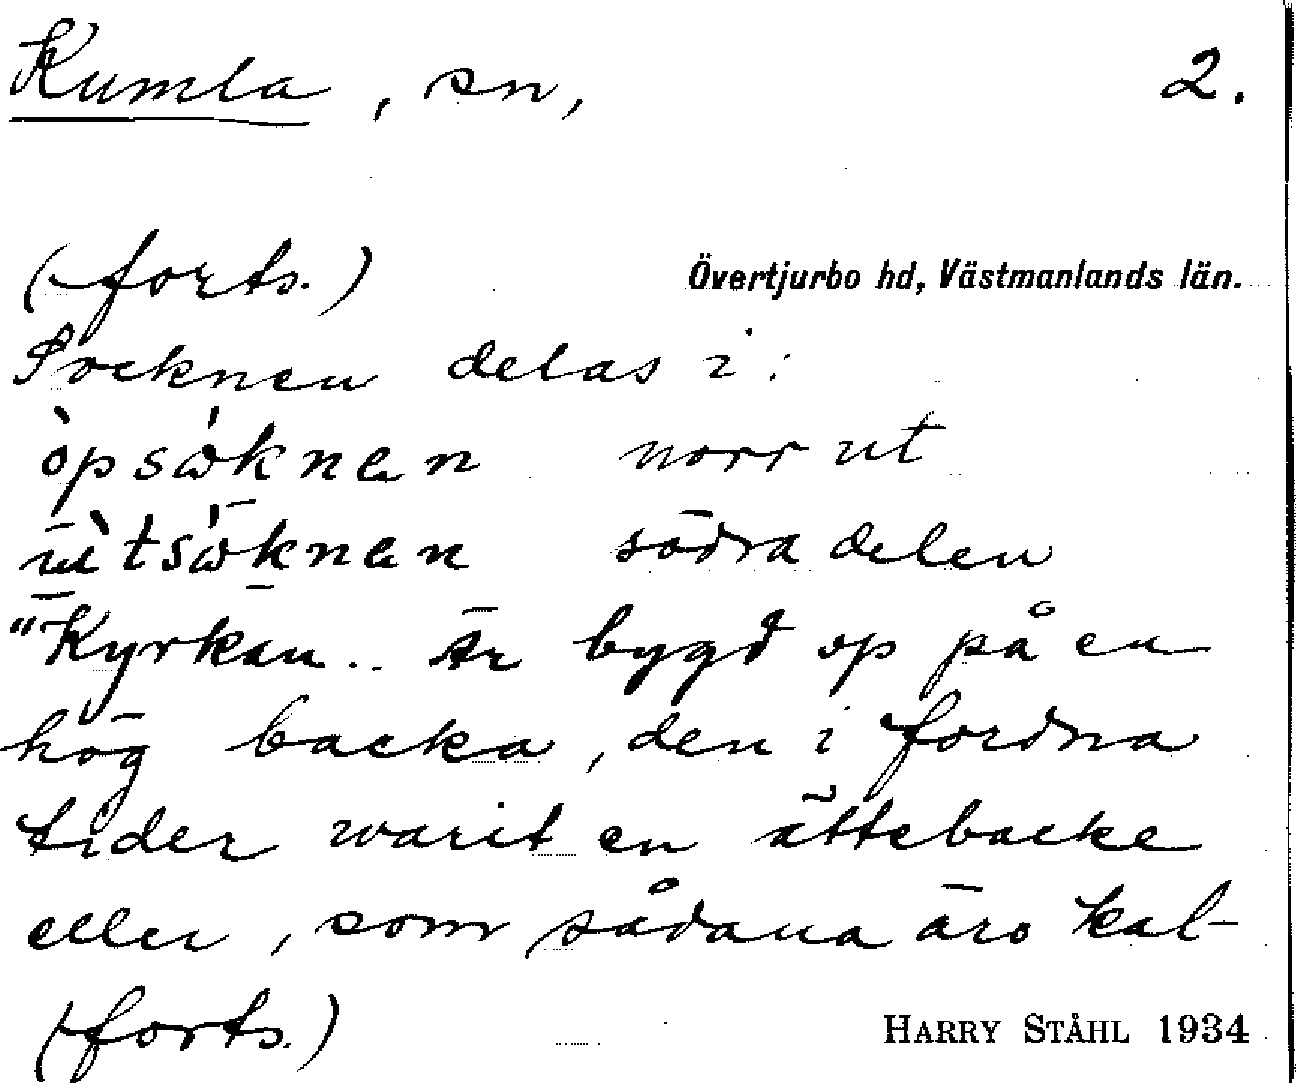 Kumla, sn, 2.
(forts.) Övertjurbo hd, Västmanlands län.
Socknen delas i:
òpsɷ́knen norr ut
ūtsɷ́knen södra delen
"Kyrkan.. är bygd op på en
hög backa, den i fordna
tider warit en ättebacke
eller, som sådana äro kal-
(forts.) HARRY STÅHL 1934